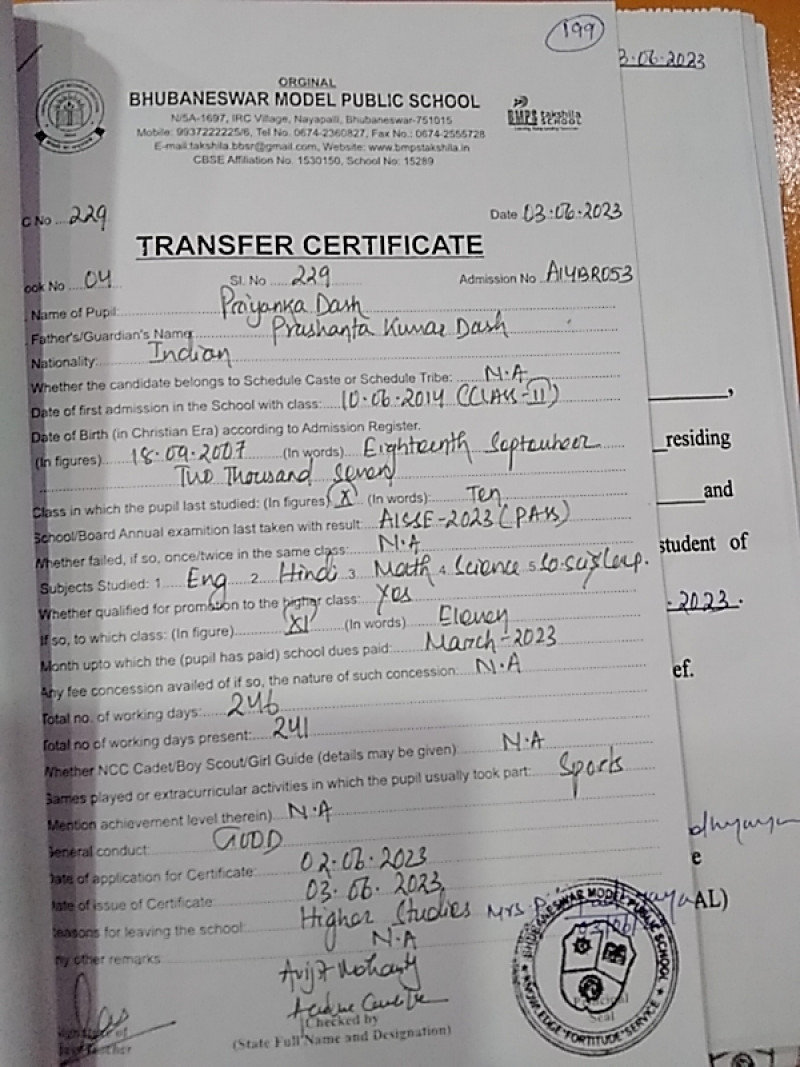 199
3.06.2023
ORGINAL
BHUBANESWAR MODEL PUBLIC SCHOOL
N/5A-1697, IRC Village, Nayapalli, Bhubaneswar-751015
Mobile: 9937222225/6, Tel No. 0674-2360827, Fax No.: 0674-2555728
E-mail:takshila.bbsr@gmail.com, Website: www.bmpstakshila.in
CBSE Affiliation No. 1530150, School No: 15289
BMPS takshila SCHOOL
C No 229 Date 03:06.2023
TRANSFER CERTIFICATE
ook No 04 Sl. No 229 Admission No A14BR053
Name of Pupil: Priyanka Dash
Father's/Guardian's Name: Prashanta Kumar Dash
Nationality: Indian
Whether the candidate belongs to Schedule Caste or Schedule Tribe: N.A
Date of first admission in the School with class: 10.06.2014 (CLASS-II)
Date of Birth (in Christian Era) according to Admission Register.
(In figures) 18.09.2007 (In words) Eighteenth September
Two Thousand Seven
Class in which the pupil last studied: (In figures) X (In words) Ten
School/Board Annual examition last taken with result: AISSE-2023 (PASS)
Whether failed, if so, once/twice in the same class: N.A
Subjects Studied: 1 Eng 2 Hindi 3 Math 4 Science 5 So.sci/Comp.
Whether qualified for promotion to the higher class: Yes
If so, to which class: (In figure) XI (In words) Eleven
Month upto which the (pupil has paid) school dues paid: March-2023
Any fee concession availed of if so, the nature of such concession: N.A
Total no. of working days: 246
Total no of working days present: 241
Whether NCC Cadet/Boy Scout/Girl Guide (details may be given) N.A
Games played or extracurricular activities in which the pupil usually took part: Sports
Mention achievement level therein) N.A
General conduct: GOOD
Date of application for Certificate: 02.06.2023
Date of issue of Certificate 03.06.2023
Reasons for leaving the school: Higher Studies
ny other remarks N.A
Avijit Mohanty
Checked by
(State Full Name and Designation)
Mrs.
BHUBANESWAR MODEL PUBLIC SCHOOL
KNOWLEDGE FORTITUDE SERVICE
Principal
Seal
,
residing
and
student of
.2023.
ef.
e
AL)